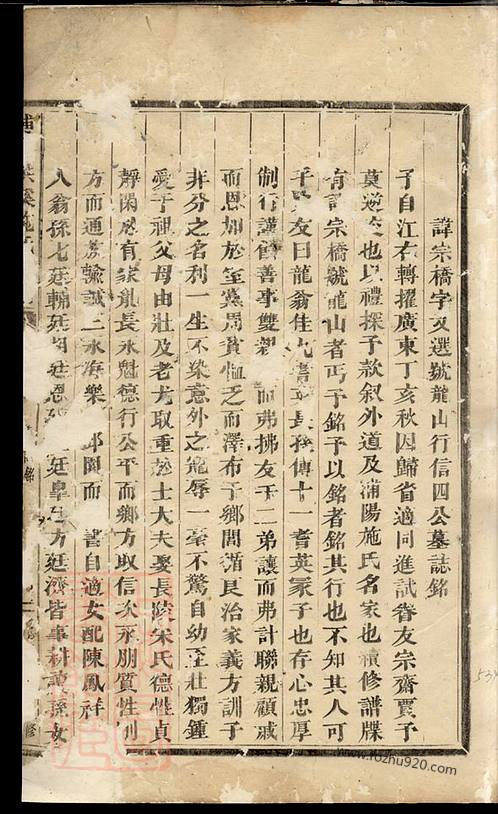 諱宗橋字文選號龍山行信四公墓誌銘
予自江右轉擢廣東丁亥秋因歸省適同進試眷友宗齋賈予
莫逆交也以禮探予款叙外道及浦陽施氏名家也續修譜牒
有諱宗橋號龍山者丐予銘予以銘者銘其行也不知其人可
乎賈友曰龍翁佳九耆英長孫傳十一耆英冢子也存心忠厚
制行謹慤善事雙親而弗拂友于二弟讓而弗計聯親顧戚
而恩加於至黨周貧恤乏而澤布于鄉閭循良治家義方訓子
非分之名利一生不染意外之寵辱一毫不驚自幼至壯獨鍾
愛于祖父母由壯及老尤取重於士大夫娶長陵朱氏德性貞
靜閑有家訓長永魁德行公平而鄉方取信次永朋質性
方而通族輸誠二永海樂邱園而書自適女配陳鳳祥
人翁孫七廷輔廷周廷恩廷廷皐廷方廷濟皆事耕讀孫女
銘
修
www.fozhu920.com